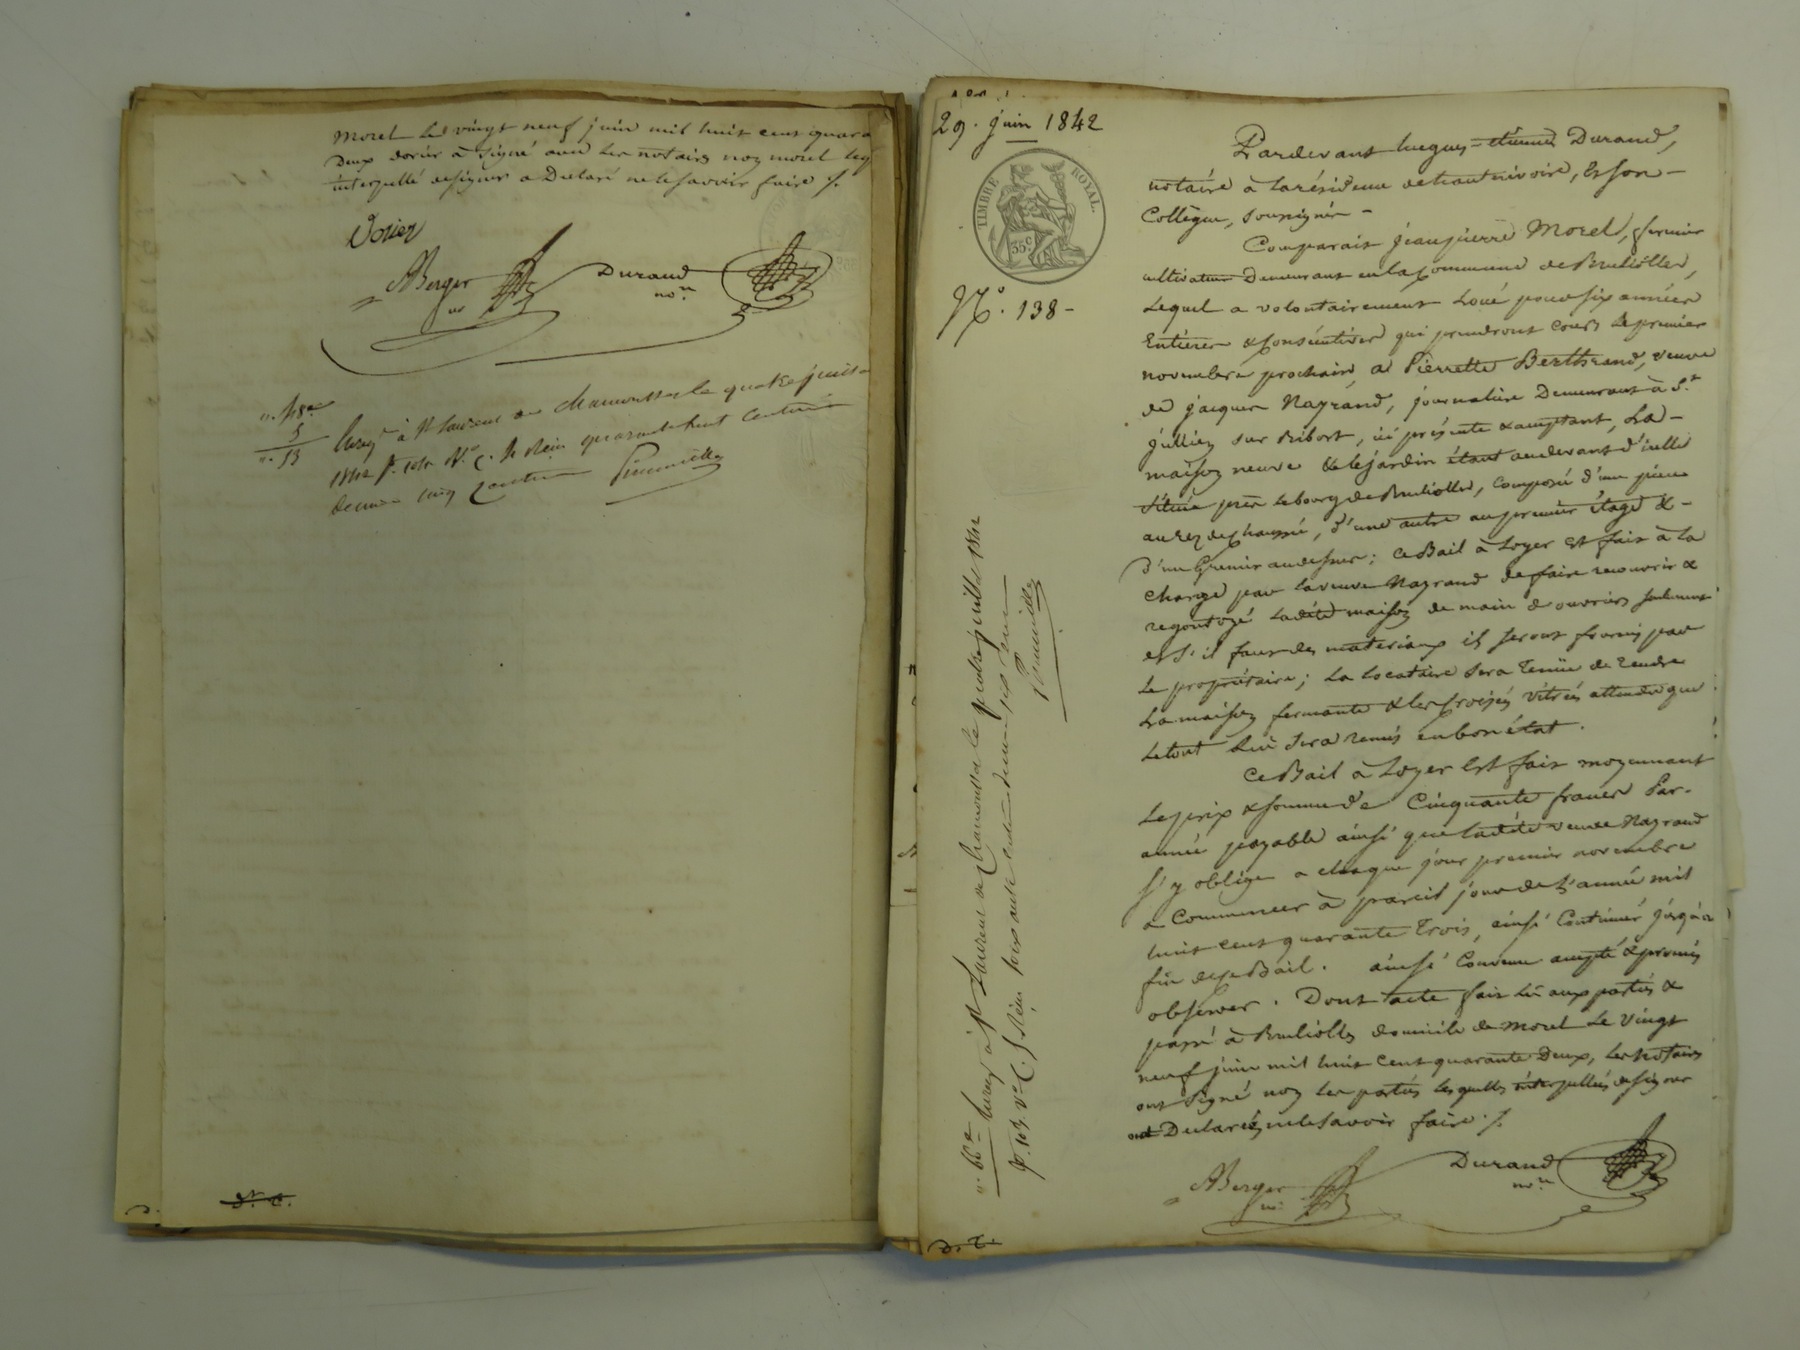 Morel le vingt neuf juin mil huit cent quara
Deux dorier à signé avec les notaires non morel
interpellé de signer a Déclaré ne le savoir faire ./.
Dorier
Berger
nre
Durand
nore
Enreg.é à St Laurent de Chamousset le quatre juillet
1842 quarante huit centimes
décime cinq centimes
29. juin 1842
TIMBRE ROYAL.
35 c
N.o 138 -
Pardevant hugues=étienne Durand,
notaire à la résidence de hauterivoire, & son -
Collègue, soussignés -
Comparait jean pierre Morel, fermier
cultivateur Demeurant en la Commune de Brulioller,
Lequel a volontairement Loué pour six années
Entières & Consécutives qui prendront cours le premier
novembre prochain, a Pierrette Berthrand, veuve
de jacques Nayrand, journalière Demeurant à St
jullien sur Bibost, ici présente & acceptant, La -
maison neuve & le jardin étant audevant d'icelle
située près le bourg de Brulioller, Composé d'une pièce
au rez de Chaussé, d'une autre au premier étage & -
d'un Grenier audessus; Ce Bail à Loyer est fait à la
charge par la veuve Nayrand de faire recouvrir &
regontoyé ladite maison de main d'ouvriers seulement
et s'il faut des materiaux ils seront fournis par
Le propriétaire; La locataire sera Tenüe de rendre
La maison fermante & les Croisés vitrées attendu que
Le tout Lui sera remis en bon état.
Ce Bail à Loyer est fait moyennant
Le prix & somme de Cinquante francs Par -
année payable ainsi que ladite veuve Nayrand
s'y oblige a chaque jour premier novembre
a Commencer à pareil jour de L'année mil
huit cent quarante Trois, ainsi Continuer jusqu'a
fin de ce Bail. ainsi Convenu accepté & promis
observer. Dont acte fait lû aux parties &
passé à Brulioller domicile de Morel Le Vingt
neuf juin mil huit Cent quarante Deux, Les Notaires
ont signé non Les parties lesquelles interpellées de signer
ont Déclarés ne le savoir faire ./.
Berger
nre
Durand
nore
Enreg.é à St Laurent de Chamousset le quatre juillet 1842
f. 103. Vo C.